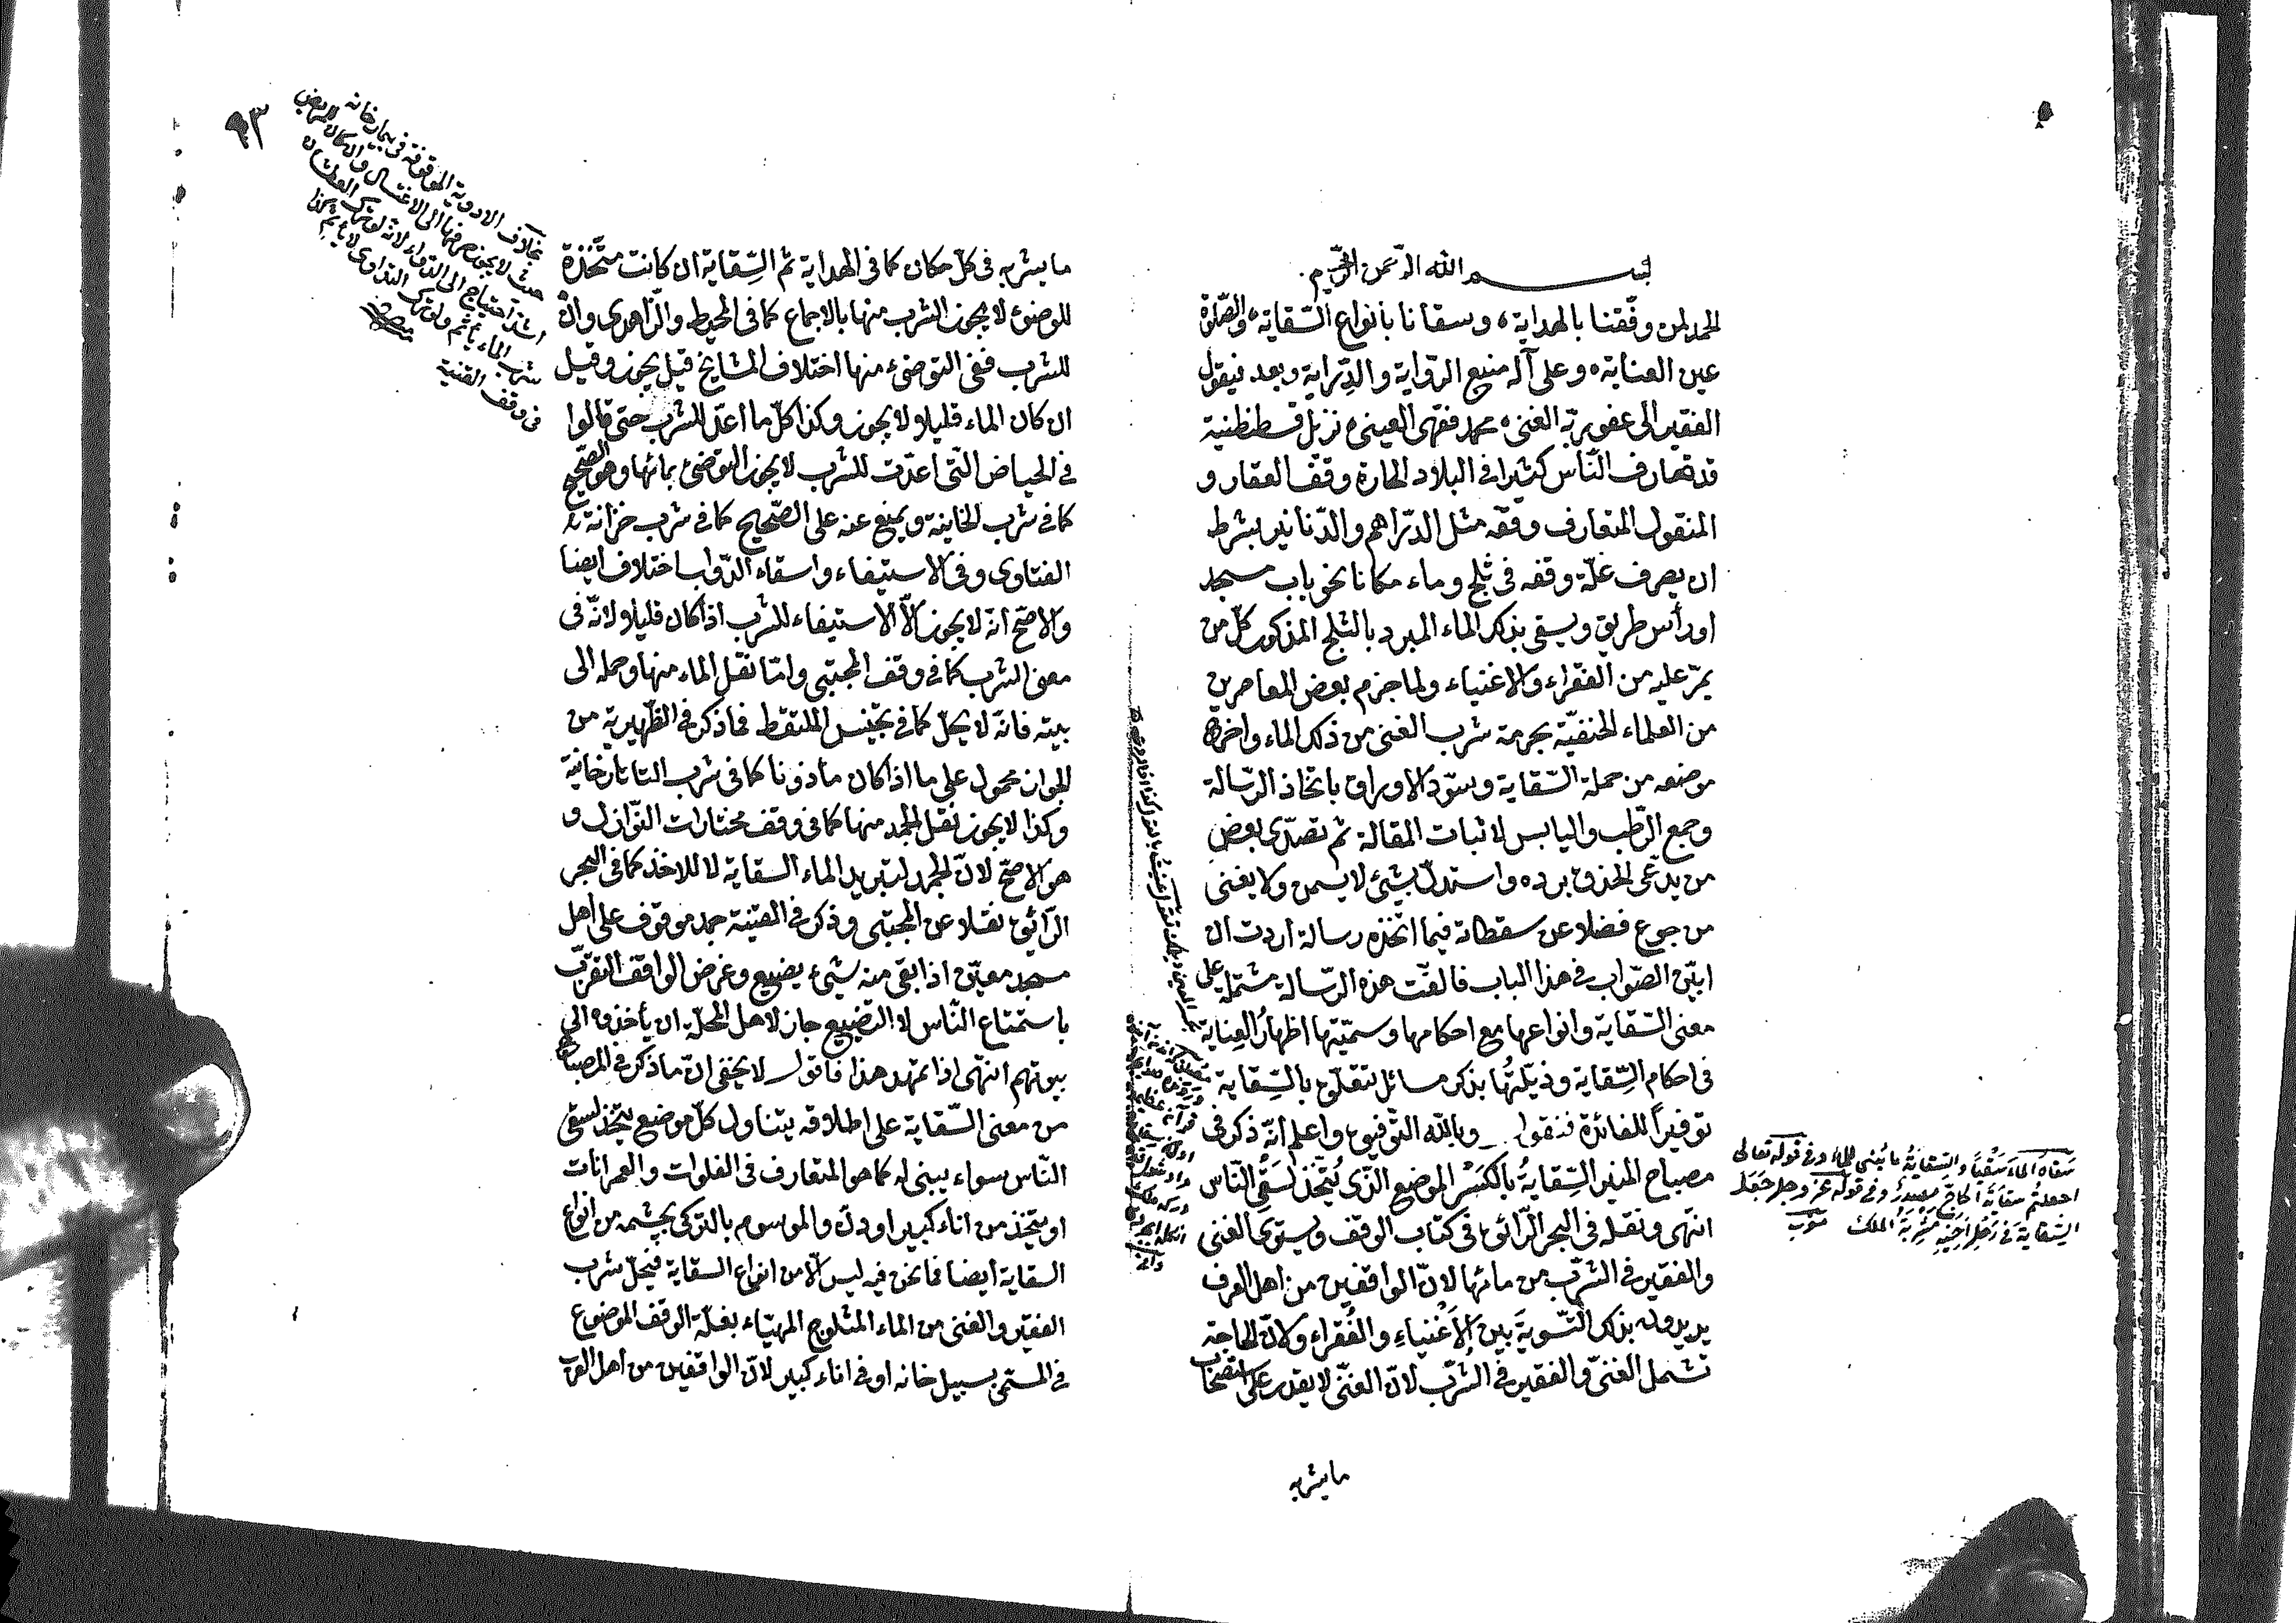 بسم الله الرحمن الرحيم
الحمد لمن وفقنا بالهداية، وسقانا بأنواع السقاية، والصلوة
عين العناية، وعلى آله منبع الرواية والدراية وبعد فيقول
الفقير الى عفو ربه الغنى، محمد فقهى العينى، نزيل قسطنطنية
قد تعارف الناس كثيرا فى البلاد الحارة وقف العقار و
المنقول المتعارف وقفه مثل الدراهم والدنانير بشرط
ان يصرف غلة وقفه فى ثلج وماء مكانا نحو باب مسجد
او رأس طريق ويسقى بذلك الماء المبرد بالثلج المذكور كل من
يمر عليه من الفقراء والاغنياء ولما جزم بعض المعاصرين
من العلماء الحنفية بحرمة شرب الغنى من ذلك الماء واخرج
موضعه من جملة السقاية وسود الاوراق باتخاذ الرسالة
وجمع الرطب واليابس لاثبات المقالة ثم تصدى بعض
من يدعى الحذق برده واستدل بشيئ لا يسمن ولا يغنى
من جوع فضلا عن سقطاته فيما اتخذه رسالة اردت ان
ابين الصواب فى هذا الباب فالفت هذه الرسالة مشتملة على
معنى السقاية وانواعها مع احكامها وسميتها اظهار العناية
فى احكام السقاية وذيلتها بذكر مسائل تتعلق بالسقاية
توفيرا للفائدة فنقول وبالله التوفيق واعلم انه ذكر فى
مصباح المنير السقاية بالكسر الموضع الذى يتخذ لسقى الناس
انتهى ونقله فى البحر الرائق فى كتاب الوقف ويستوى الغنى
والفقير فى الشرب من مائها لان الواقفين من اهل العرف
يريدون بذلك التسوية بين الاغنياء والفقراء ولان الحاجة
تشمل الغنى والفقير فى الشرب لان الغنى لا يقدر على استصحاب
ما يشربه
سقاه الماء سقيا والسقاية ما يبنى للماء وفى قوله تعالى
اجعلتم سقاية الحاج مصدر وفى قوله عز وجل جعل
السقاية فى رحل اخيه مشربة الملك مغرب
٩٣
ما يشربه فى كل مكان كما فى الهداية ثم السقاية ان كانت متخذة
للوضوء لا يجوز الشرب منها بالاجماع كما فى المحيط والزاهدى وان
للشرب ففى التوضئ منها اختلاف المشايخ قيل يجوز وقيل
ان كان الماء قليلا ولا يجوز وكذا كل ما اعد للشرب حتى قالوا
فى الحياض التى اعدت للشرب لا يجوز التوضئ بمائها وهو الصحيح
كما فى شرب الخانية ويمنع عنه على الصحيح كما فى شرب خزانة
الفتاوى وفى الاستيفاء واسقاء الدواب اختلاف ايضا
والاصح انه لا يجوز الا الاستيفاء للشرب اذا كان قليلا ولانه فى
معنى الشرب كما فى وقف المجتبى واما نقل الماء منها وحمله الى
بيته فانه لا يحل كما فى تجنيس الملتقط فما ذكر فى الظهيرية من
الجواز محمول على ما اذا كان مأذونا كما فى شرب التاتارخانية
وكذا لا يجوز نقل الجمد منها كما فى وقف مختارات النوازل و
هو الاصح لان الجمد لتبريد الماء السقاية لا للاخذ كما فى البحر
الرائق نقلا عن المجتبى وذكر فى القنية جمد موقوف على اهل
مسجد معين اذا بقى منه شيئ يضيع وغرض الواقف التقرب
باستمتاع الناس لا التضييع جاز لاهل المحلة ان يأخذوه الى
بيوتهم انتهى اذا تمهد هذا فاقول لا يخفى ان ما ذكر فى المصباح
من معنى السقاية على اطلاقه يتناول كل موضع يتخذ لسقى
الناس سواء يبنى له كما هو المتعارف فى الفلوات والعمرانات
او يتخذ من اناء كبير او دن والموسوم بالتركى بچشمه من انواع
السقاية ايضا فما نحن فيه ليس الا من انواع السقاية فيحل شرب
الفقير والغنى من الماء المثلوج المهيّاء بغلة الوقف الموضوع
فى المسمى بسبيل خانه او فى اناء كبير لان الواقفين من اهل العرف
بخلاف الادوية الموقوفة فى بيمارخانه
حيث لا يجوز صرفها الى الاغنياء
احتياج الى الدواء لانه لو ترك العطشان
شرب الماء يأثم ولو ترك التداوى لا يأثم
فى وقف القنية